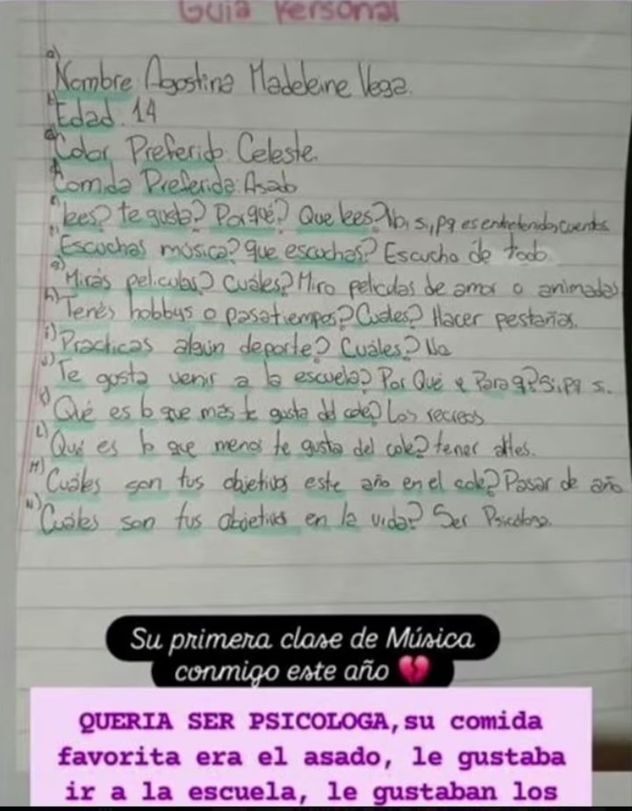 Guia Personal
a) Nombre: Agostina Madeleine Vega.
b) Edad: 14
c) Color Preferido: Celeste.
d) Comida Preferida: Asado
e) lees? te gusta? Porqué? Que lees? No, si, pq es entretenido, cuentos
f) Escuchas música? que escuchas? Escucho de todo.
g) Mirás peliculas? Cuáles? Miro peliculas de amor o animadas
h) Tenés hobbys o pasatiempos? Cuales? Hacer pestañas.
i) Practicas algun deporte? Cuáles? No
j) Te gusta venir a la escuela? Por Qué y Para q? Si, pq s.
k) Qué es lo que más te gusta del cole? Los recreos
L) Qué es lo que menos te gusta del cole? tener
M) Cuáles son tus objetivos este año en el cole? Pasar de año
N) Cuáles son tus objetivos en la vida? Ser Psicologa.
Su primera clase de Música
conmigo este año 💔
QUERIA SER PSICOLOGA, su comida
favorita era el asado, le gustaba
ir a la escuela, le gustaban los